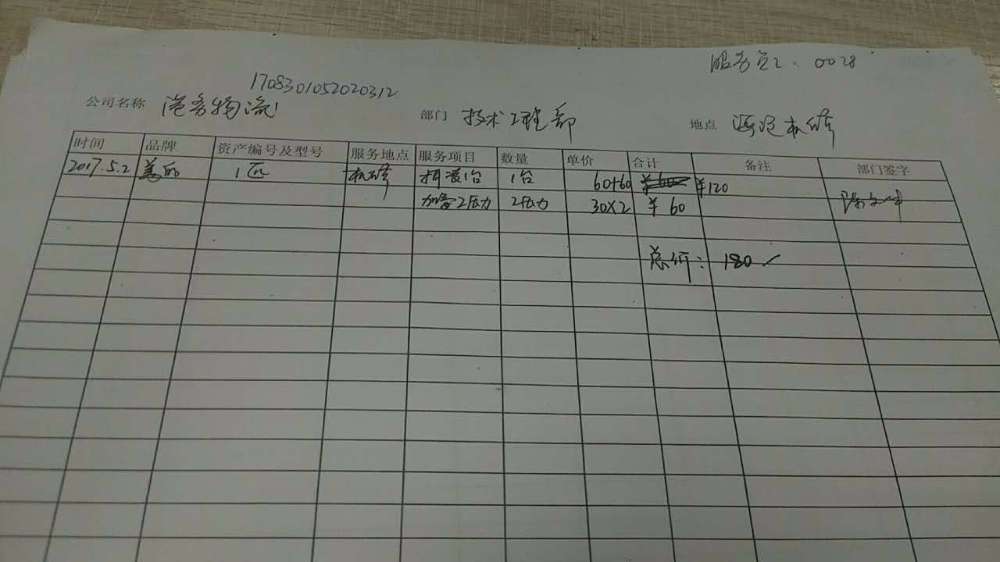 服务员2、0028
1708301052020312
公司名称 港务物流 部门 技术工程部 地点 机修
时间 品牌 资产编号及型号 服务地点 服务项目 数量 单价 合计 备注 部门签字
2017.5.2 美的 1匹 机修 拆装1台 1台 60+60 ¥120
加雪2压力 2压力 30×2 ¥60
总价：180